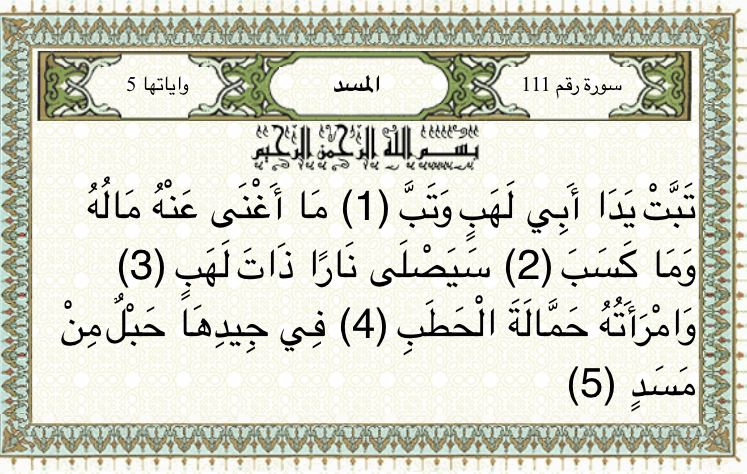 سورة رقم 111
المسد
واياتها 5
بسم الله الرحمن الرحيم
تَبَّتْ يَدَا أَبِي لَهَبٍ وَتَبَّ (1) مَا أَغْنَى عَنْهُ مَالُهُ
وَمَا كَسَبَ (2) سَيَصْلَى نَارًا ذَاتَ لَهَبٍ (3)
وَامْرَأَتُهُ حَمَّالَةَ الْحَطَبِ (4) فِي جِيدِهَا حَبْلٌ مِنْ
مَسَدٍ (5)